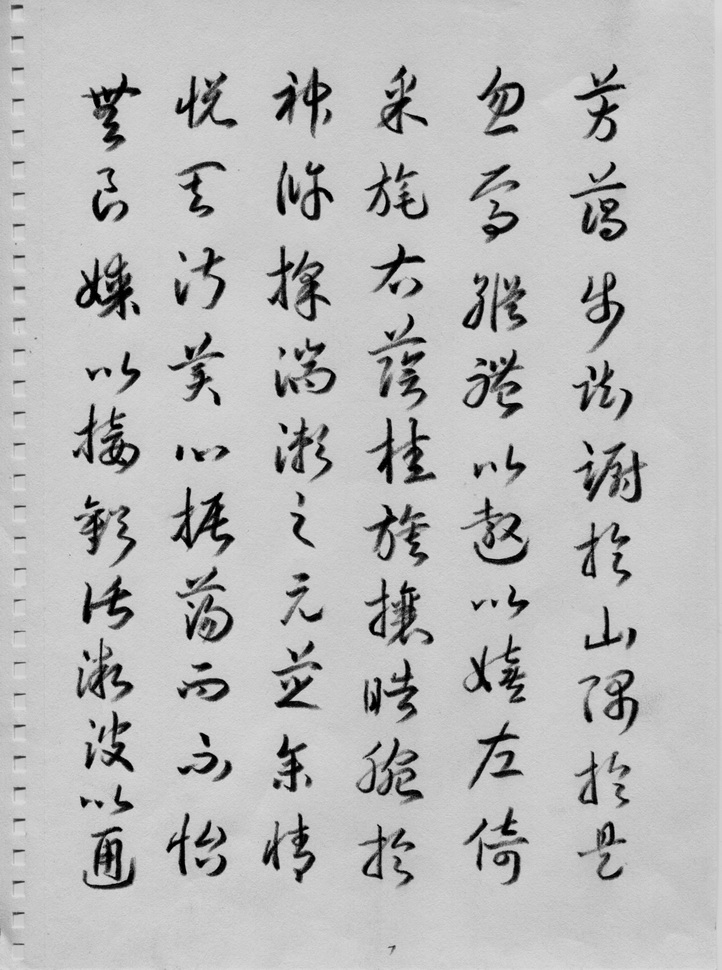 芳藹步踟躕於山隅於是
忽焉縱體以遨以嬉左倚
采旄右蔭桂旗攘皓腕於
神滸採湍瀨之元芝余情
悅其淑美心振蕩而不怡
無良媒以接歡託微波以通
7